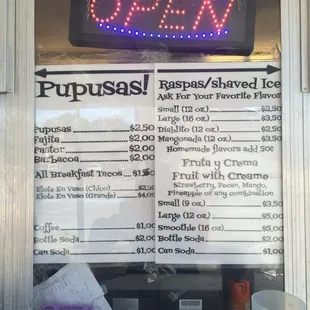 OPEN
Pupusas!
Pupusas $2.50
Fajita $2.00
Pastor $2.00
Barbacoa $2.00
All Breakfast Tacos $1.5
Elote En Vaso (Chico) $2.50
Elote En Vaso (Grande) $4.00
Coffee $1.00
Bottle Soda $2.00
Can Soda $1.00
Raspas/shaved Ice
Ask For Your Favorite Flavor
Small (12 oz.) $2.50
Large (16 oz) $3.00
Diablito (12 oz) $2.50
Mangonada (12 oz) $3.50
Homemade flavors add 50¢
Fruta y Crema
Fruit with Creame
Strawberry, Pecan, Mango,
Pineapple or any combination
Small (9 oz) $3.50
Large (12 oz) $5.00
Smoothie (16 oz) $5.00
Bottle Soda $2.00
Can Soda $1.00